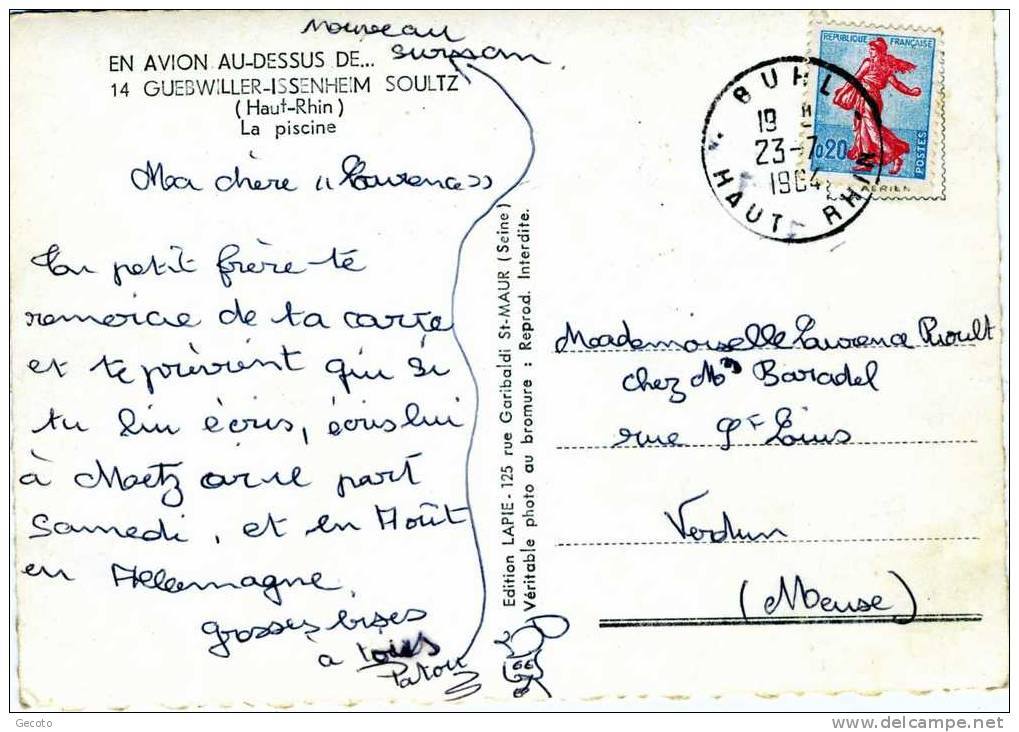 Nouveau
surnom
EN AVION AU-DESSUS DE...
14 GUEBWILLER-ISSENHEIM SOULTZ
(Haut-Rhin)
La piscine
Ma chère "Laurence"
Ton petit frère te
remercie de ta carte
et te prévient que si
tu lui écris, écris lui
à Metz car il part
samedi, et en Août
en Allemagne.
grosses bises
à tous
Patou
Edition LAPIE - 125 rue Garibaldi St-MAUR (Seine)
Véritable photo au bromure : Reprod. Interdite.
REPUBLIQUE FRANÇAISE
0,20
POSTES
AERIEN
BUHL
19 H
23-7
1964
HAUT RHIN
Mademoiselle Laurence Proult
chez Mr Baradel
rue St Louis
Verdun
(Meuse)
Gecoto
www.delcampe.net